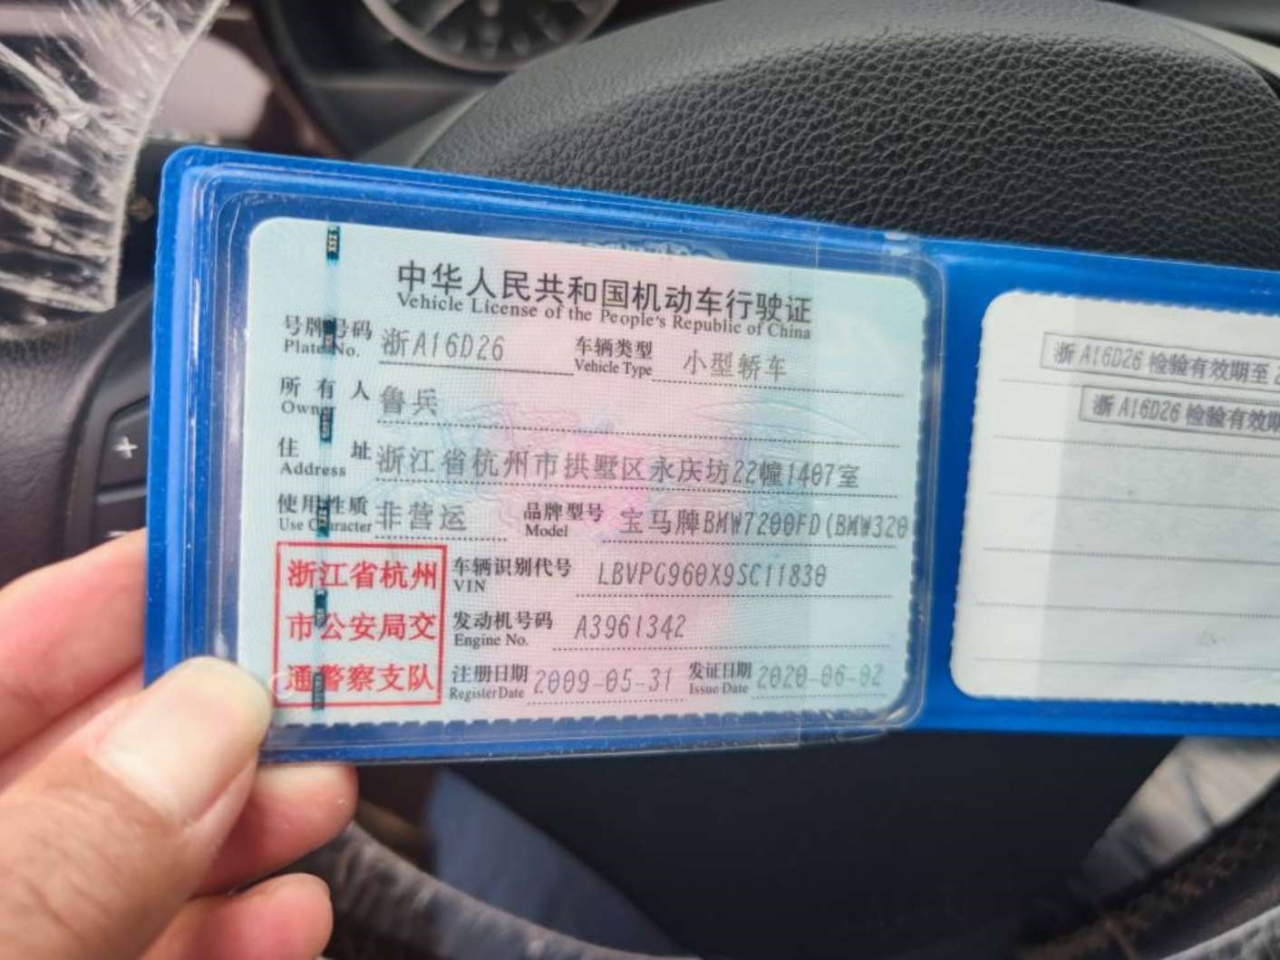 中华人民共和国机动车行驶证
Vehicle License of the People's Republic of China
号牌号码 浙A16D26 车辆类型 小型轿车
Plate No. Vehicle Type
所有人 鲁兵
Owner
住址 浙江省杭州市拱墅区永庆坊22幢1407室
Address
使用性质 非营运 品牌型号 宝马牌BMW7200FD(BMW320
Use Character Model
浙江省杭州
市公安局交
通警察支队
车辆识别代号 LBVPG960X9SC11830
VIN
发动机号码 A3961342
Engine No.
注册日期 2009-05-31 发证日期 2020-06-02
Register Date Issue Date
浙A16D26检验有效期至2
浙A16D26检验有效期